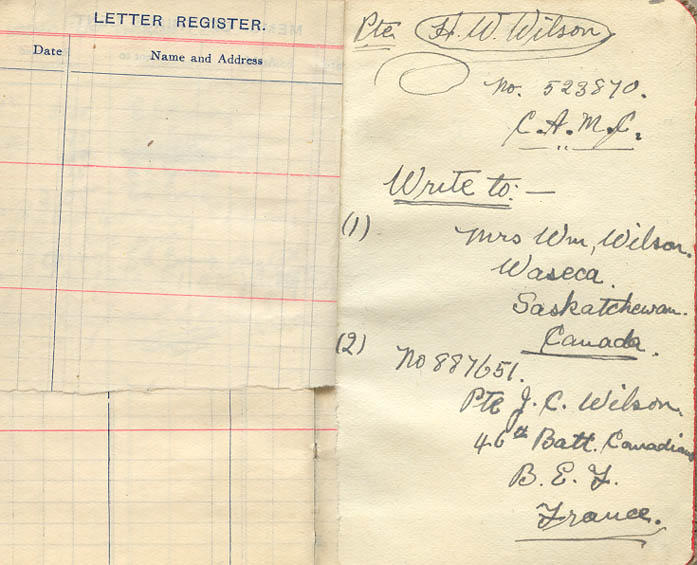 LETTER REGISTER.
Date
Name and Address
Pte H. W. Wilson
No. 523870.
C.A.M.C.
Write to:—
(1) Mrs Wm, Wilson.
Waseca.
Saskatchewan.
Canada.
(2) No 887651.
Pte J. C. Wilson.
46th Batt. Canadians
B. E. F.
France.